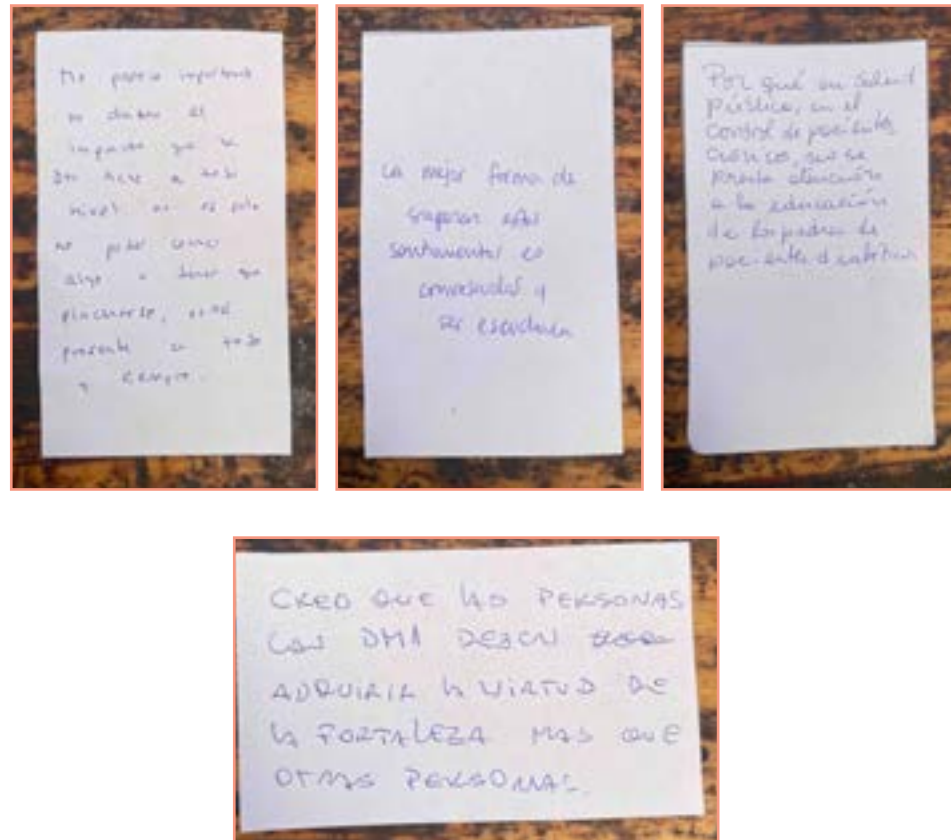 Me parece importante
no olvidar el
impacto que la
DM1 tiene a todo
nivel, no es solo
no poder comer
algo o tener que
pincharse, está
presente en todo
y siempre.
La mejor forma de
superar estos
sentimientos es
conversarlos y
ser escuchada
Por qué en salud
pública, en el
control de pacientes
crónicos, no se
presta atención
a la educación
de los padres de
pacientes diabéticos
CREO QUE LAS PERSONAS
CON DM1 DEBEN
ADQUIRIR LA VIRTUD DE
LA FORTALEZA MAS QUE
OTRAS PERSONAS.